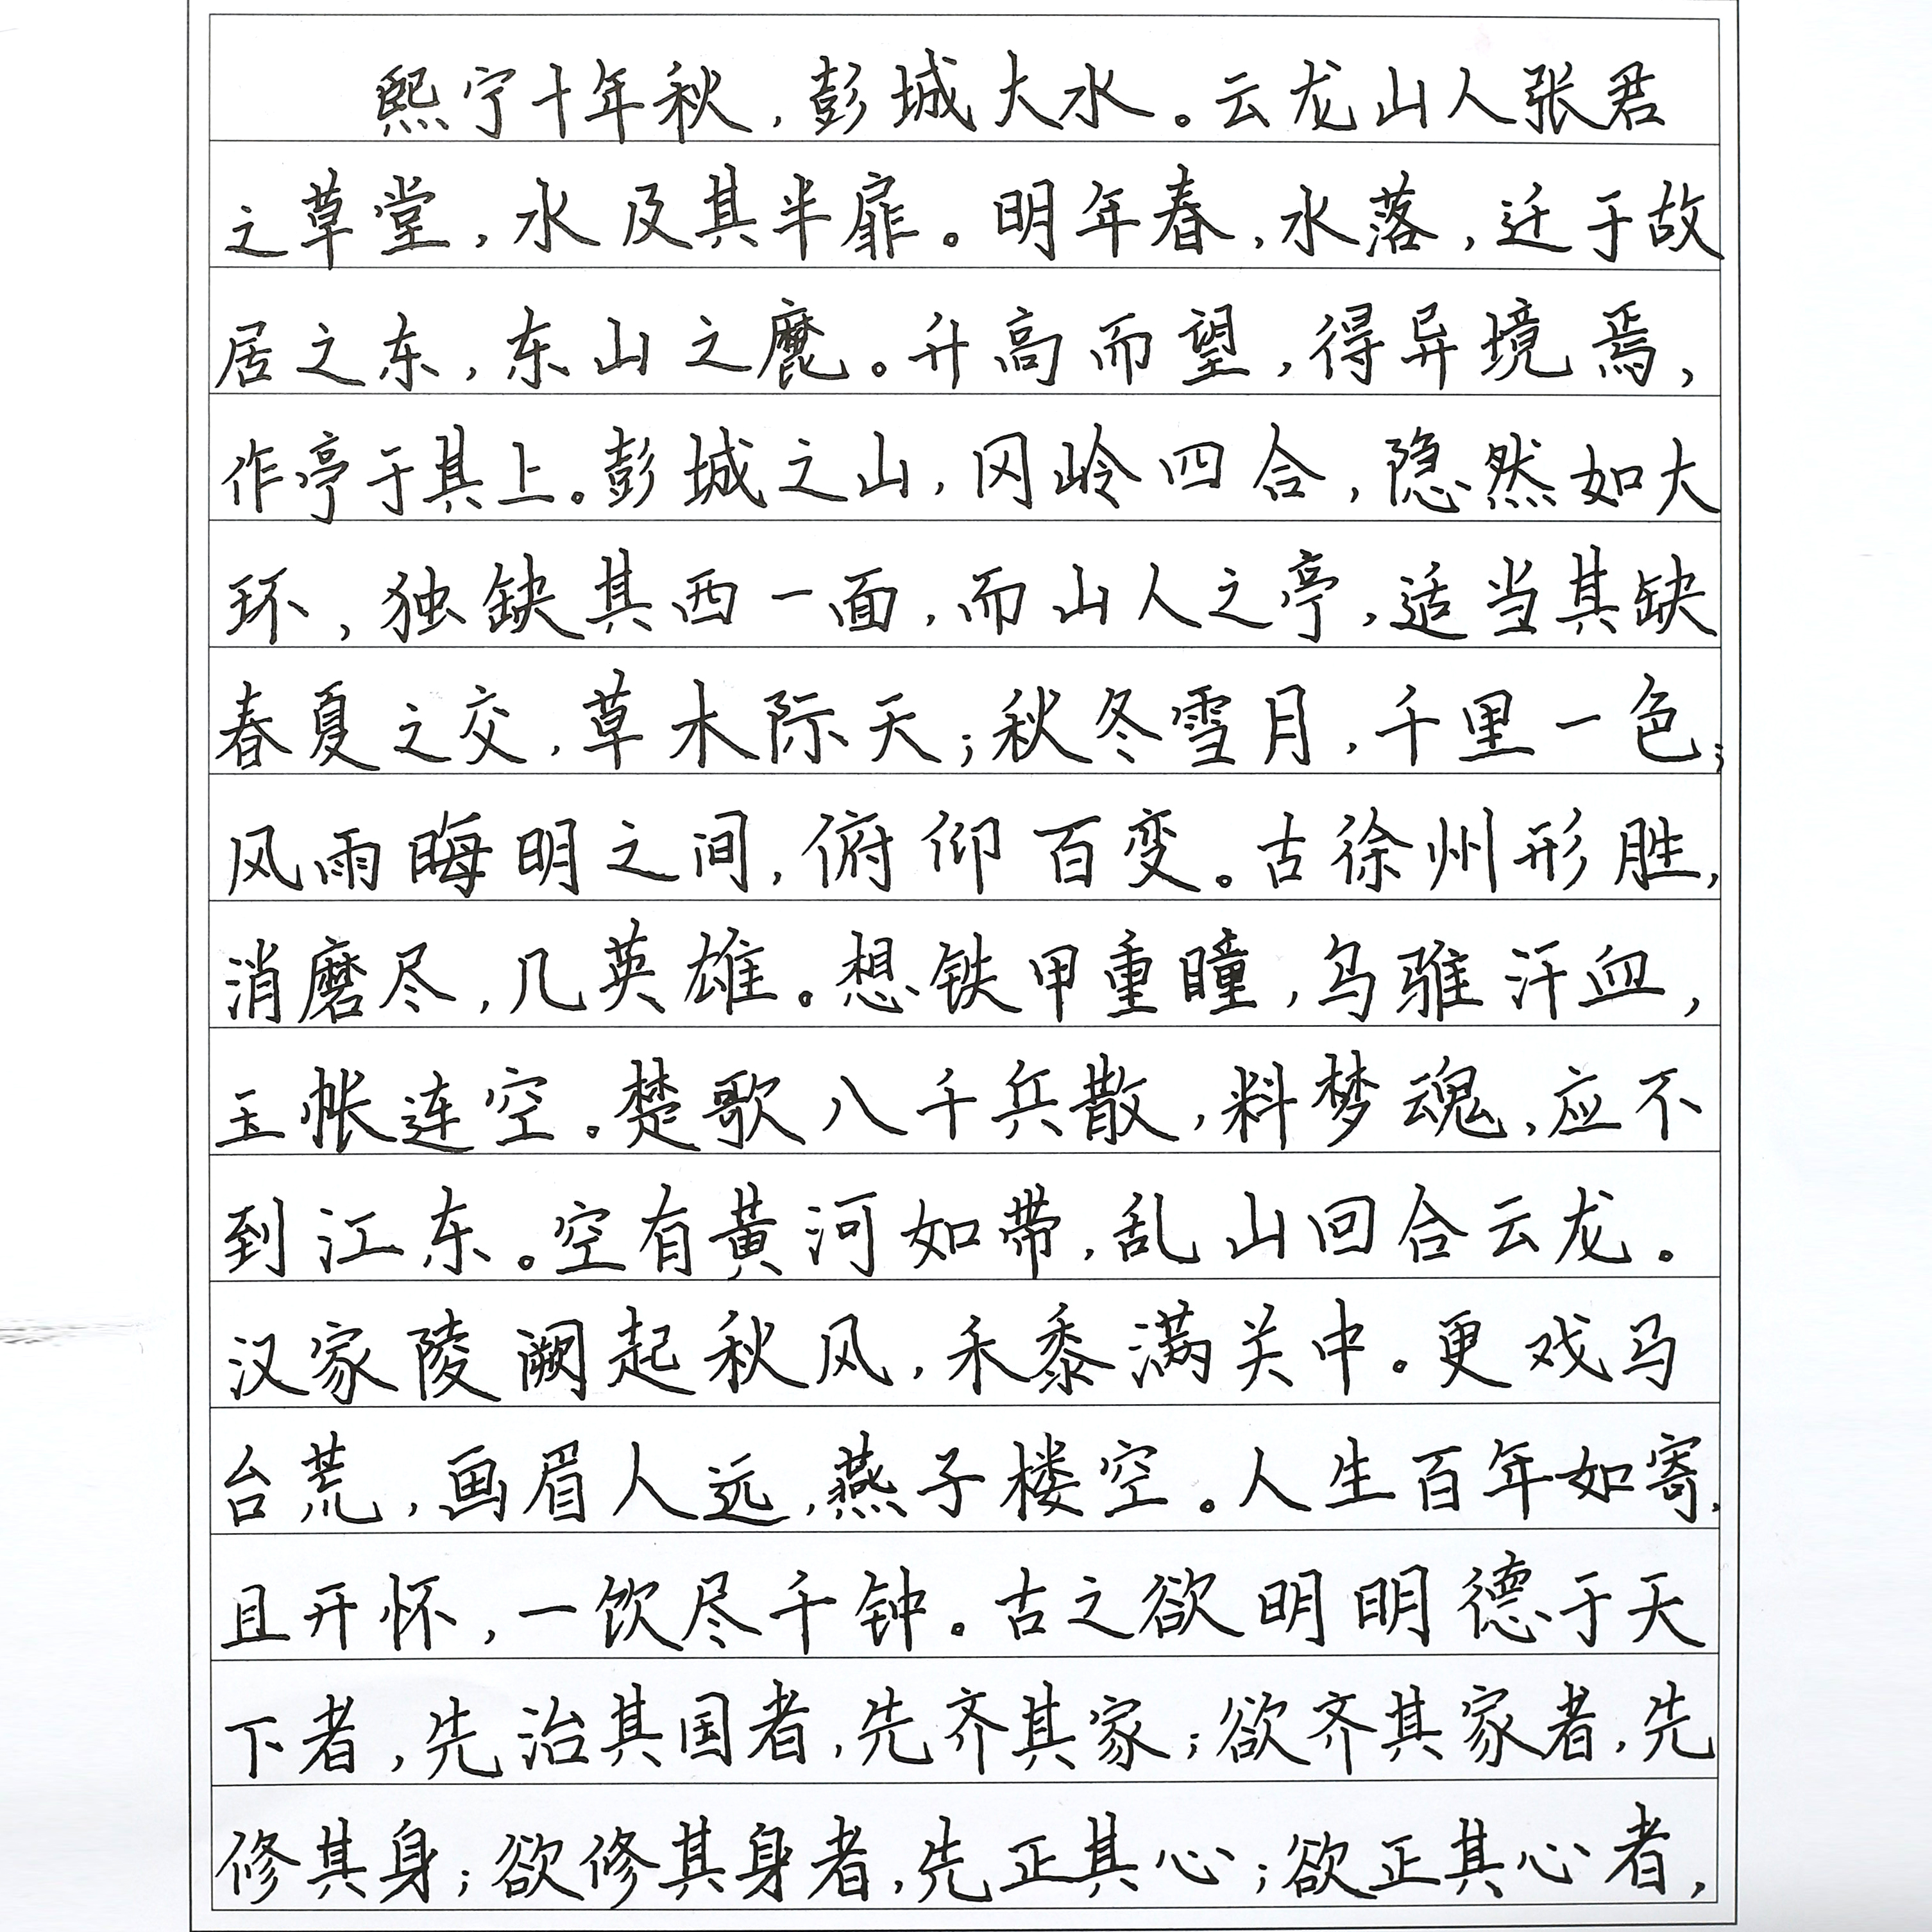 熙宁十年秋,彭城大水。云龙山人张君
之草堂,水及其半扉。明年春,水落,迁于故
居之东,东山之麓。升高而望,得异境焉,
作亭于其上。彭城之山,冈岭四合,隐然如大
环,独缺其西一面,而山人之亭,适当其缺
春夏之交,草木际天;秋冬雪月,千里一色;
风雨晦明之间,俯仰百变。古徐州形胜,
消磨尽,几英雄。想铁甲重瞳,乌骓汗血,
玉帐连空。楚歌八千兵散,料梦魂,应不
到江东。空有黄河如带,乱山回合云龙。
汉家陵阙起秋风,禾黍满关中。更戏马
台荒,画眉人远,燕子楼空。人生百年如寄,
且开怀,一饮尽千钟。古之欲明明德于天
下者,先治其国者,先齐其家;欲齐其家者,先
修其身;欲修其身者,先正其心;欲正其心者,